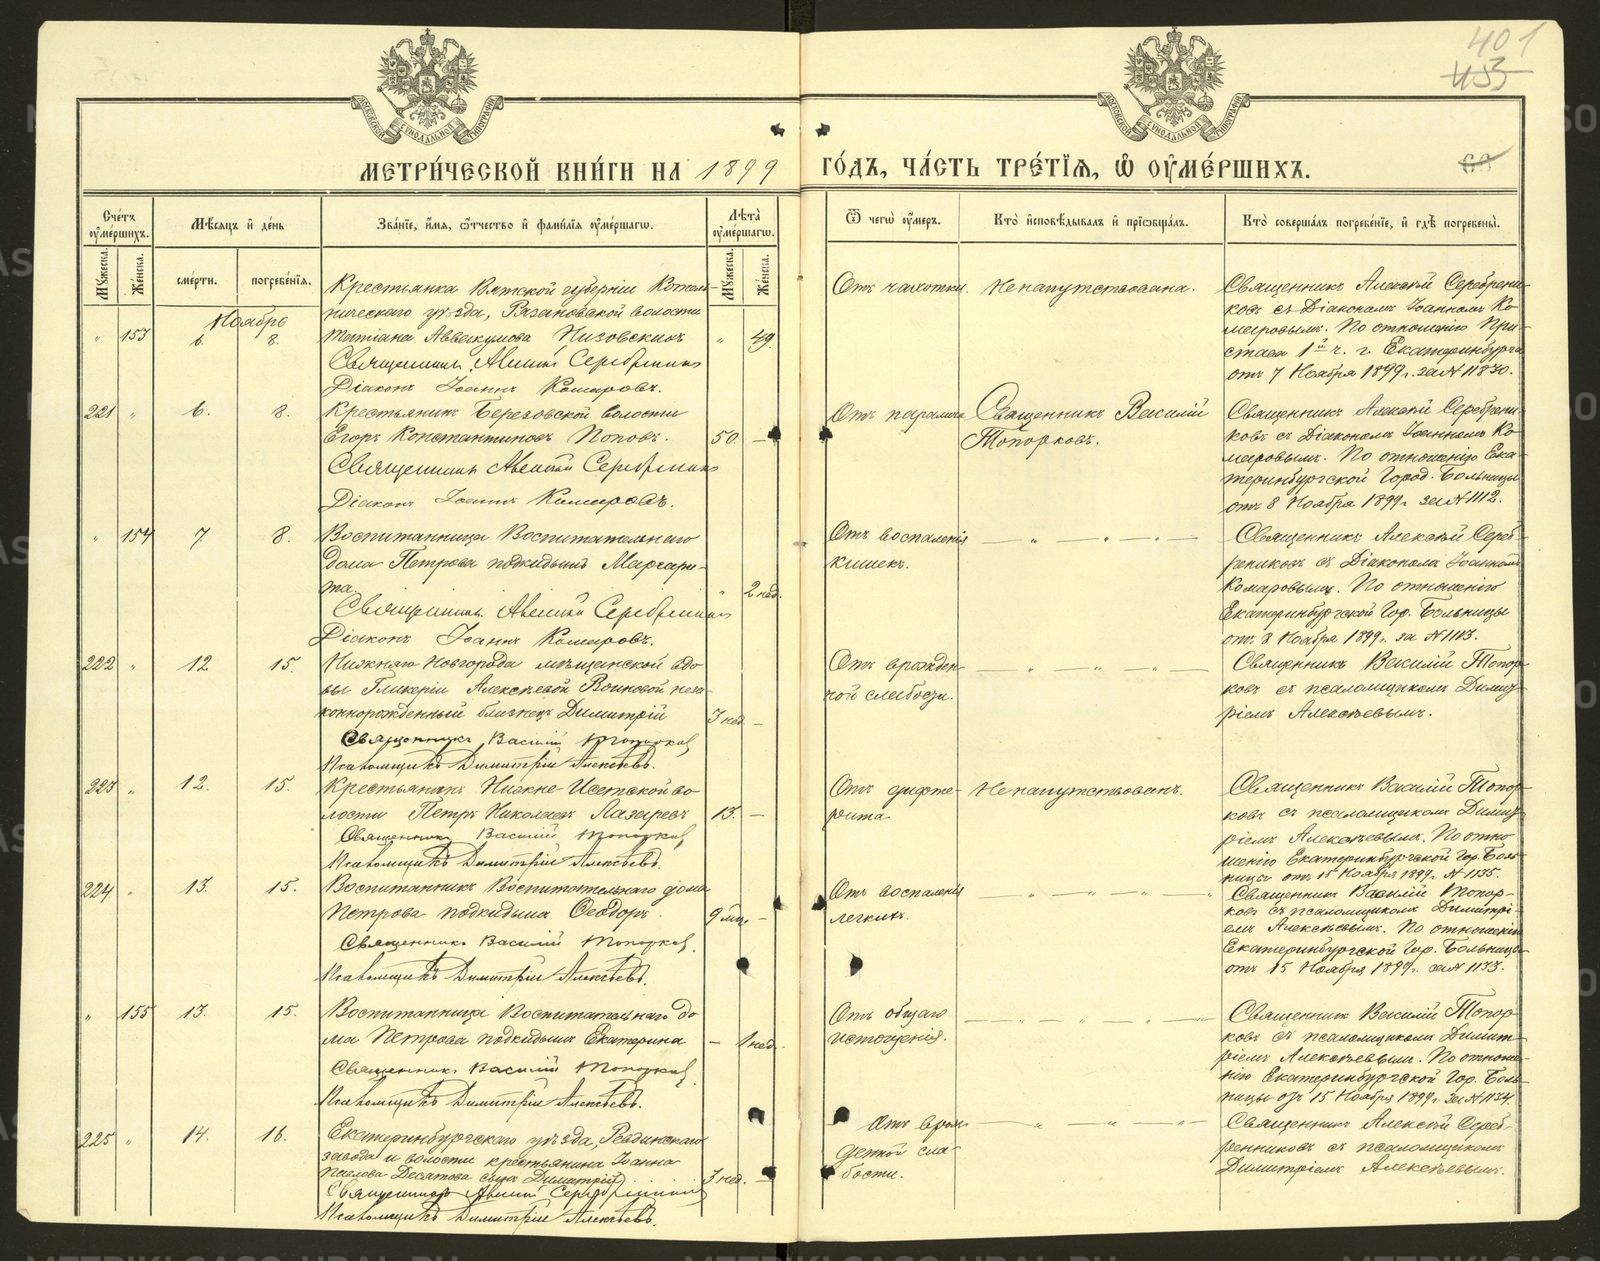 401
453
МЕТРИ́ЧЕСКОЙ КНИ́ГИ НА 1899
ГО́ДЪ, ЧА́СТЬ ТРЕ́ТІѦ, Ѽ ОУ҆МЕ́РШИХЪ.
Сче́тъ оу҆ме́ршихъ.
Мꙋ́жеска.
Же́нска.
Мѣ́сѧцъ и҆ де́нь
сме́рти.
погребе́нїѧ.
Зва́нїе, и҆́мѧ, ѻ҆́тчество и҆ фами́лїѧ оу҆ме́ршагѡ.
Лѣ́та оу҆ме́ршагѡ.
Мꙋ́жеска.
Же́нска.
Ѿ чегѡ̀ оу҆́меръ.
Кто̀ и҆сповѣ́дывалъ и҆ прїѡбща́лъ.
Кто̀ соверша́лъ погребе́нїе, и҆ гдѣ̀ погребены̀.
Ноябрь
„ 153 6. 8.
Крестьянка Вятской губерніи Котель-
ническаго уѣзда, Рязановской волости
Татіана Аввакумова Низовскихъ „ 49.
Священникъ Алексій Серебренниковъ
Діаконъ Іоаннъ Комаровъ.
Отъ чахотки. Не напутствована.
Священникъ Алексѣй Серебрени-
ковъ съ Діакономъ Іоанномъ Ко-
маровымъ. По отношенію При-
става 1й ч. г. Екатеринбурга
отъ 7 Ноября 1899 г. за № 11830.
221 „ 6. 8.
Крестьянинъ Березовской волости
Егоръ Константиновъ Поповъ. 50. —
Священникъ Алексій Серебренниковъ
Діаконъ Іоаннъ Комаровъ.
Отъ паралича Священникъ Василій
Топорковъ.
Священникъ Алексѣй Серебрени-
ковъ съ Діакономъ Іоанномъ Ко-
маровымъ. По отношенію Ека-
теринбургской Город. Больницы
отъ 8 Ноября 1899 г. за № 1112.
„ 154 7 8.
Воспитанница Воспитательнаго
дома Петрова подкидышъ Маргари-
та „ 2 нед.
Священникъ Алексій Серебренниковъ
Діаконъ Іоаннъ Комаровъ.
Отъ воспаленія — „ — „ — „ —
кишекъ.
Священникъ Алексѣй Сереб-
рениковъ съ Діакономъ Іоанномъ
Комаровымъ. По отношенію
Екатеринбургской Гор. Больницы
отъ 8 Ноября 1899 г. за № 1113.
222 „ 12 15.
Нижняго Новгорода мѣщанской вдо-
вы Гликеріи Алексѣевой Воиновой неза-
коннорожденный близнецъ Димитрій 3 нед. —
Священникъ Василій Топорковъ
Псаломщикъ Димитрій Алексѣевъ.
Отъ врожден- — „ — „ — „ —
ной слабости.
Священникъ Василій Топор-
ковъ съ псаломщикомъ Димит-
ріемъ Алексѣевымъ.
223 „ 12. 15.
Крестьянинъ Нижне-Исетской во-
лости Петръ Николаевъ Лазаревъ 13. —
Священникъ Василій Топорковъ
Псаломщикъ Димитрій Алексѣевъ.
Отъ дифте- Не напутствованъ.
рита
Священникъ Василій Топор-
ковъ съ псаломщикомъ Димит-
ріемъ Алексѣевымъ. По отно-
шенію Екатеринбургской Гор. Боль-
ницы отъ 15 Ноября 1899 г. № 1135.
224 „ 13. 15.
Воспитанникъ Воспитательнаго дома
Петрова подкидышъ Ѳеодоръ. 9 мѣс. —
Священникъ Василій Топорковъ.
Псаломщикъ Димитрій Алексѣевъ.
Отъ воспаленія — „ — „ — „
легкихъ.
Священникъ Василій Топор-
ковъ съ псаломщикомъ Димитрі-
емъ Алексѣевымъ. По отношенію
Екатеринбургской Гор. Больницы
отъ 15 Ноября 1899 г. за № 1133.
„ 155 13. 15.
Воспитанница Воспитательнаго до-
ма Петрова подкидышъ Екатерина — 1 нед.
Священникъ Василій Топорковъ.
Псаломщикъ Димитрій Алексѣевъ.
Отъ общаго — „ — „ — „ —
истощенія.
Священникъ Василій Топор-
ковъ съ псаломщикомъ Димит-
ріемъ Алексѣевымъ. По отноше-
нію Екатеринбургской Гор. Боль-
ницы отъ 15 Ноября 1899 г. за № 1134.
225 „ 14. 16.
Екатеринбургскаго уѣзда, Ревдинскаго
завода и волости крестьянина Іоанна
Павлова Десятова сынъ Димитрій 3 нед. —
Священникъ Алексій Серебренниковъ
Псаломщикъ Димитрій Алексѣевъ.
Отъ врож- — „ — „ — „ —
денной сла-
бости.
Священникъ Алексѣй Сереб-
ренниковъ съ псаломщикомъ
Димитріемъ Алексѣевымъ.